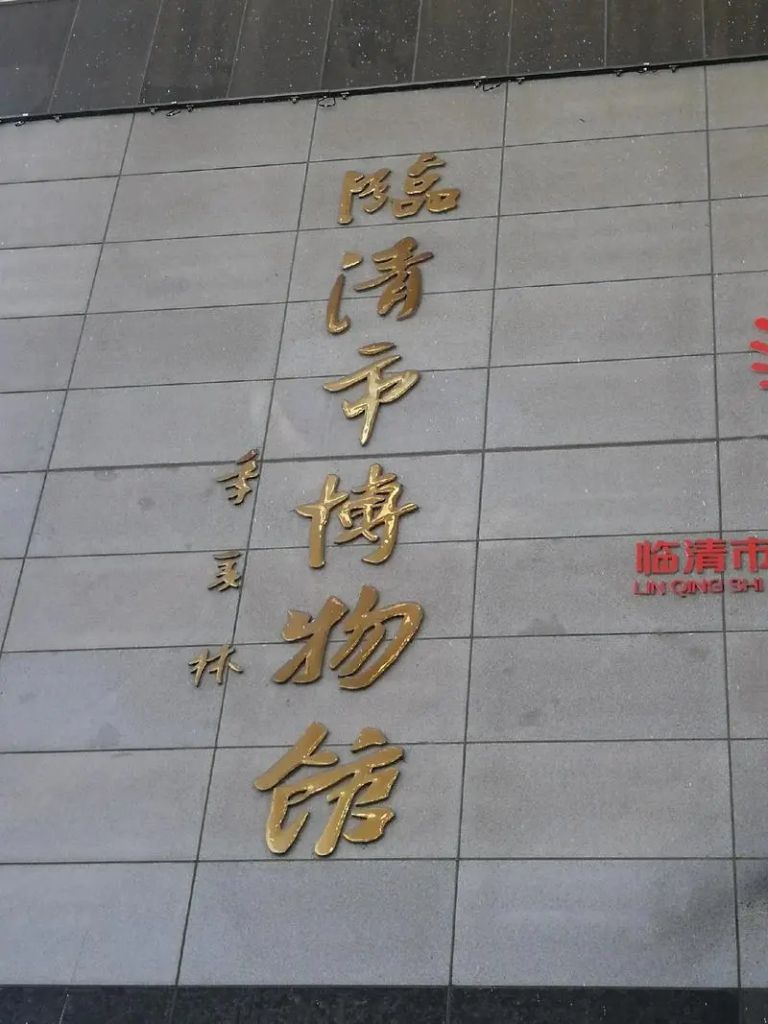 臨清市博物館
季羡林
临清市
LIN QING SHI